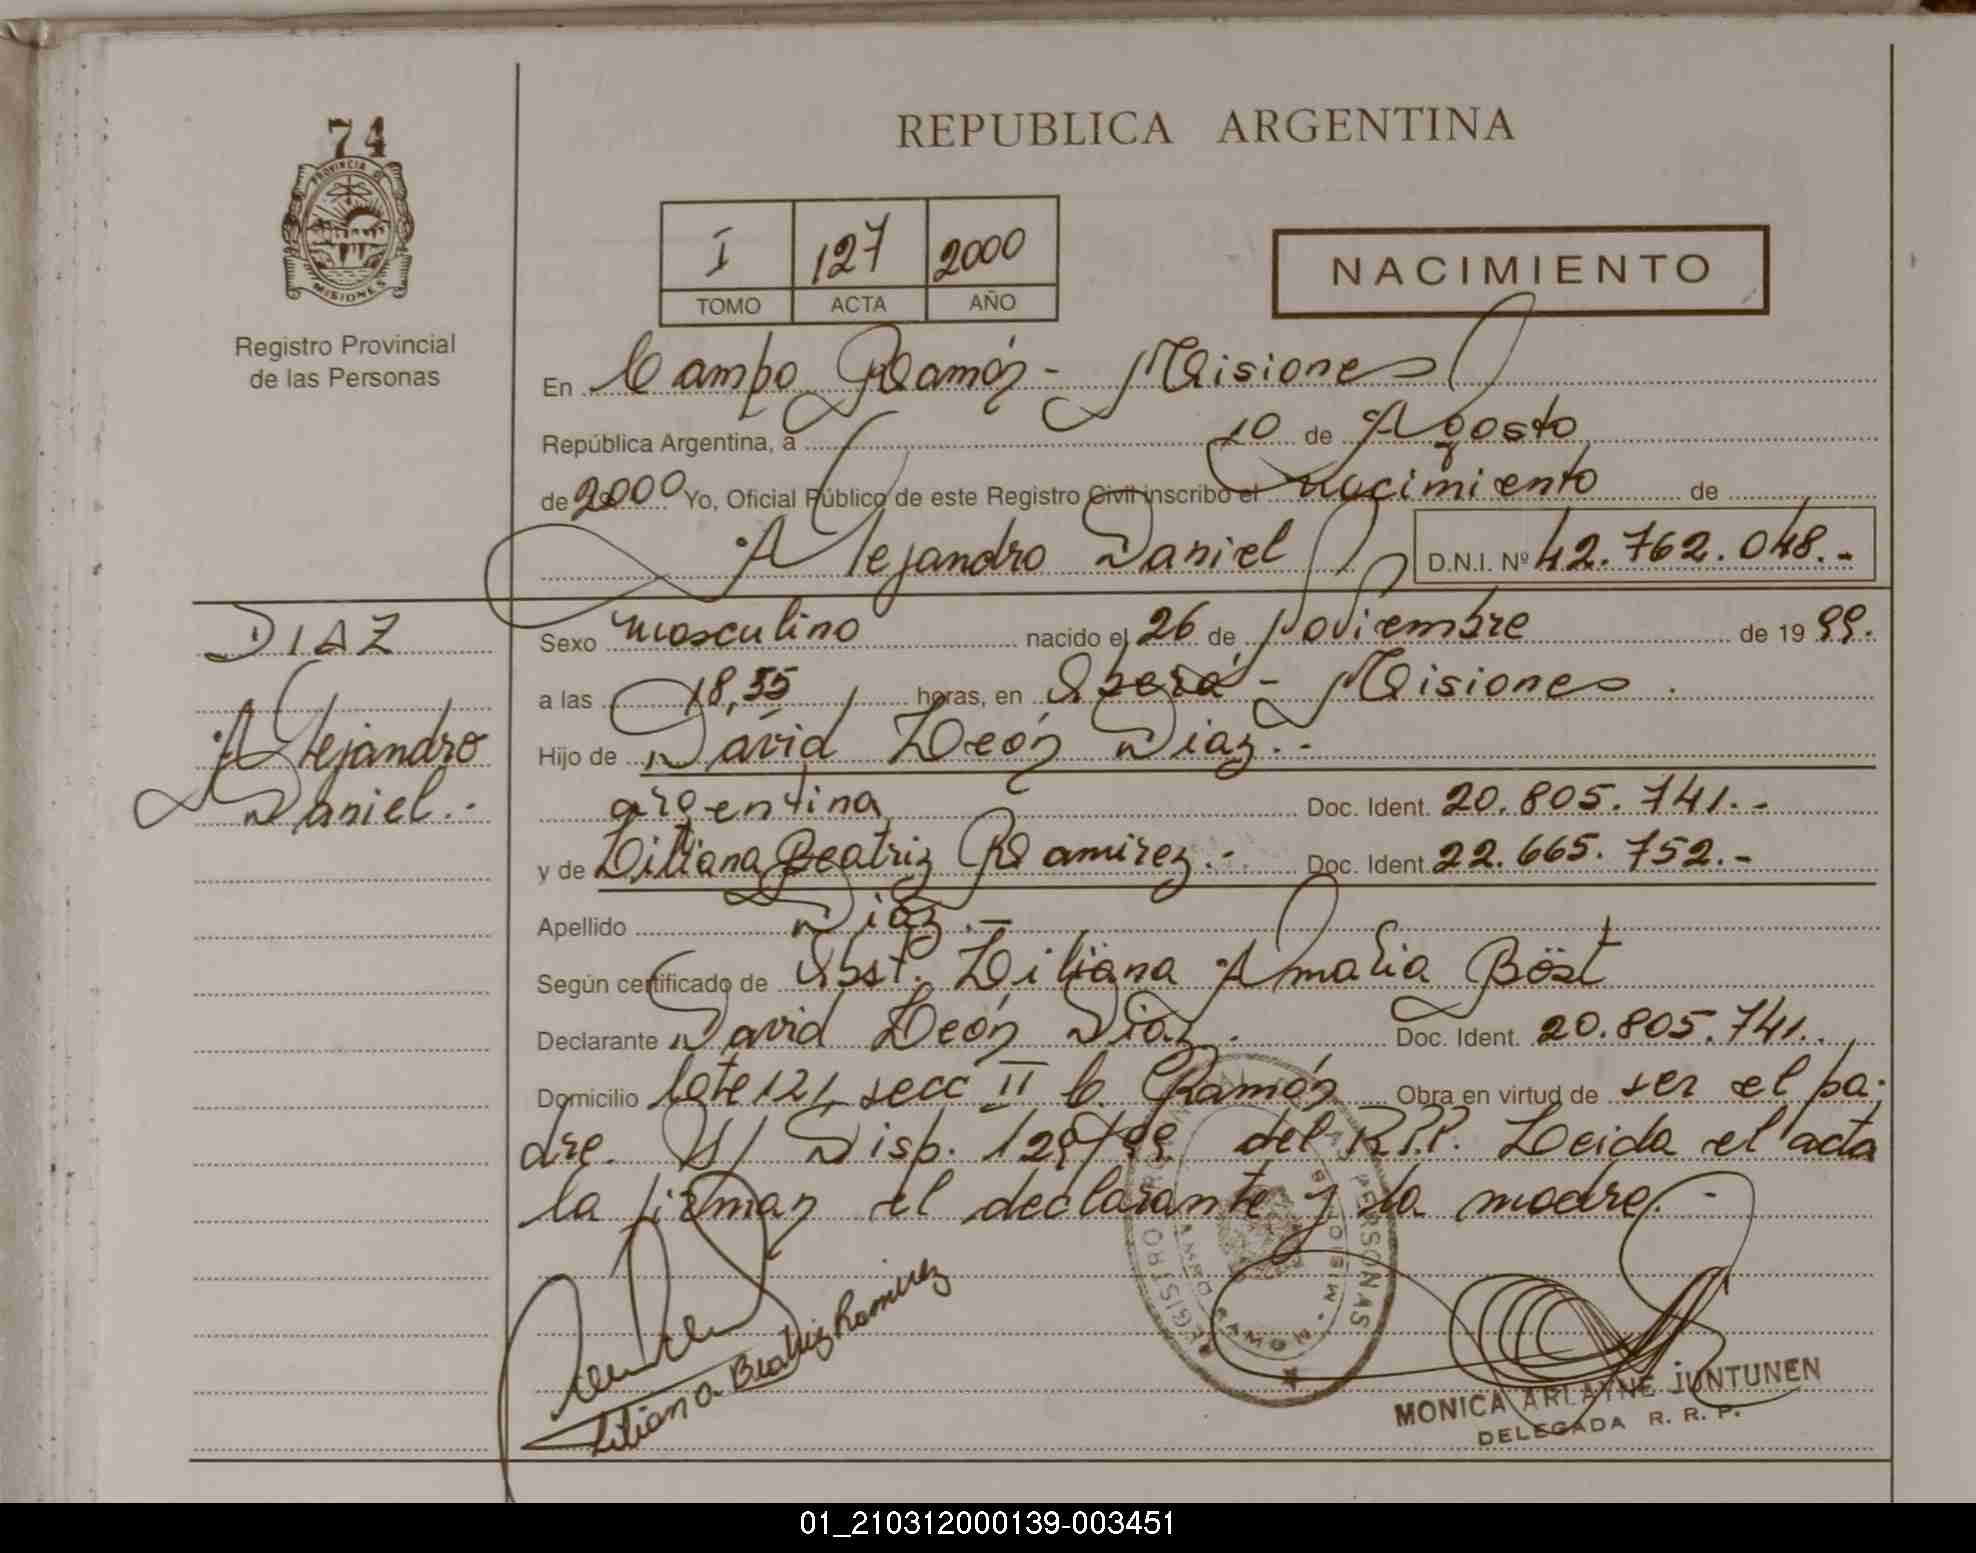 74
PROVINCIA DE
MISIONES
Registro Provincial
de las Personas
REPUBLICA ARGENTINA
I 127 2000
TOMO ACTA AÑO
NACIMIENTO
En Campo Ramón - Misiones
República Argentina, a 10 de Agosto
de 2000 Yo, Oficial Público de este Registro Civil inscribo el nacimiento de
Alejandro Daniel D.N.I. Nº 42.762.048.-
DIAZ
Alejandro
Daniel.-
Sexo masculino nacido el 26 de Noviembre de 1999.
a las 18,55 horas, en Oberá - Misiones.
Hijo de David León Diaz.-
argentina Doc. Ident. 20.805.741.-
y de Liliana Beatriz Ramirez.- Doc. Ident. 22.665.752.-
Apellido Diaz.-
Según certificado de Obst. Liliana Amalia Böst
Declarante David León Diaz. Doc. Ident. 20.805.741.
Domicilio lote 121 secc II C. Ramón Obra en virtud de ser el pa-
dre. S/ Disp. 129/99 del R.P.P. Leida el acta
la firman el declarante y la madre.-
Liliana Beatriz Ramirez
REGISTRO PERSONAS
CAMPO RAMON - MISIONES
MONICA ARLAYNE JUNTUNEN
DELEGADA R. R. P.
01_210312000139-003451